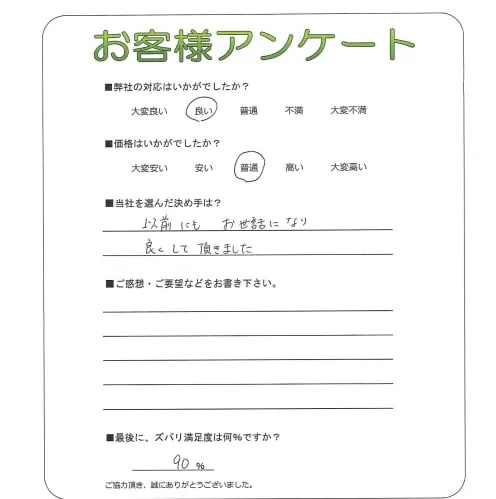 お客様アンケート
■弊社の対応はいかがでしたか？
大変良い 良い 普通 不満 大変不満
■価格はいかがでしたか？
大変安い 安い 普通 高い 大変高い
■当社を選んだ決め手は？
以前にも お世話になり
良くして頂きました
■ご感想・ご要望などをお書き下さい。
■最後に、ズバリ満足度は何%ですか？
90 %
ご協力頂き、誠にありがとうございました。